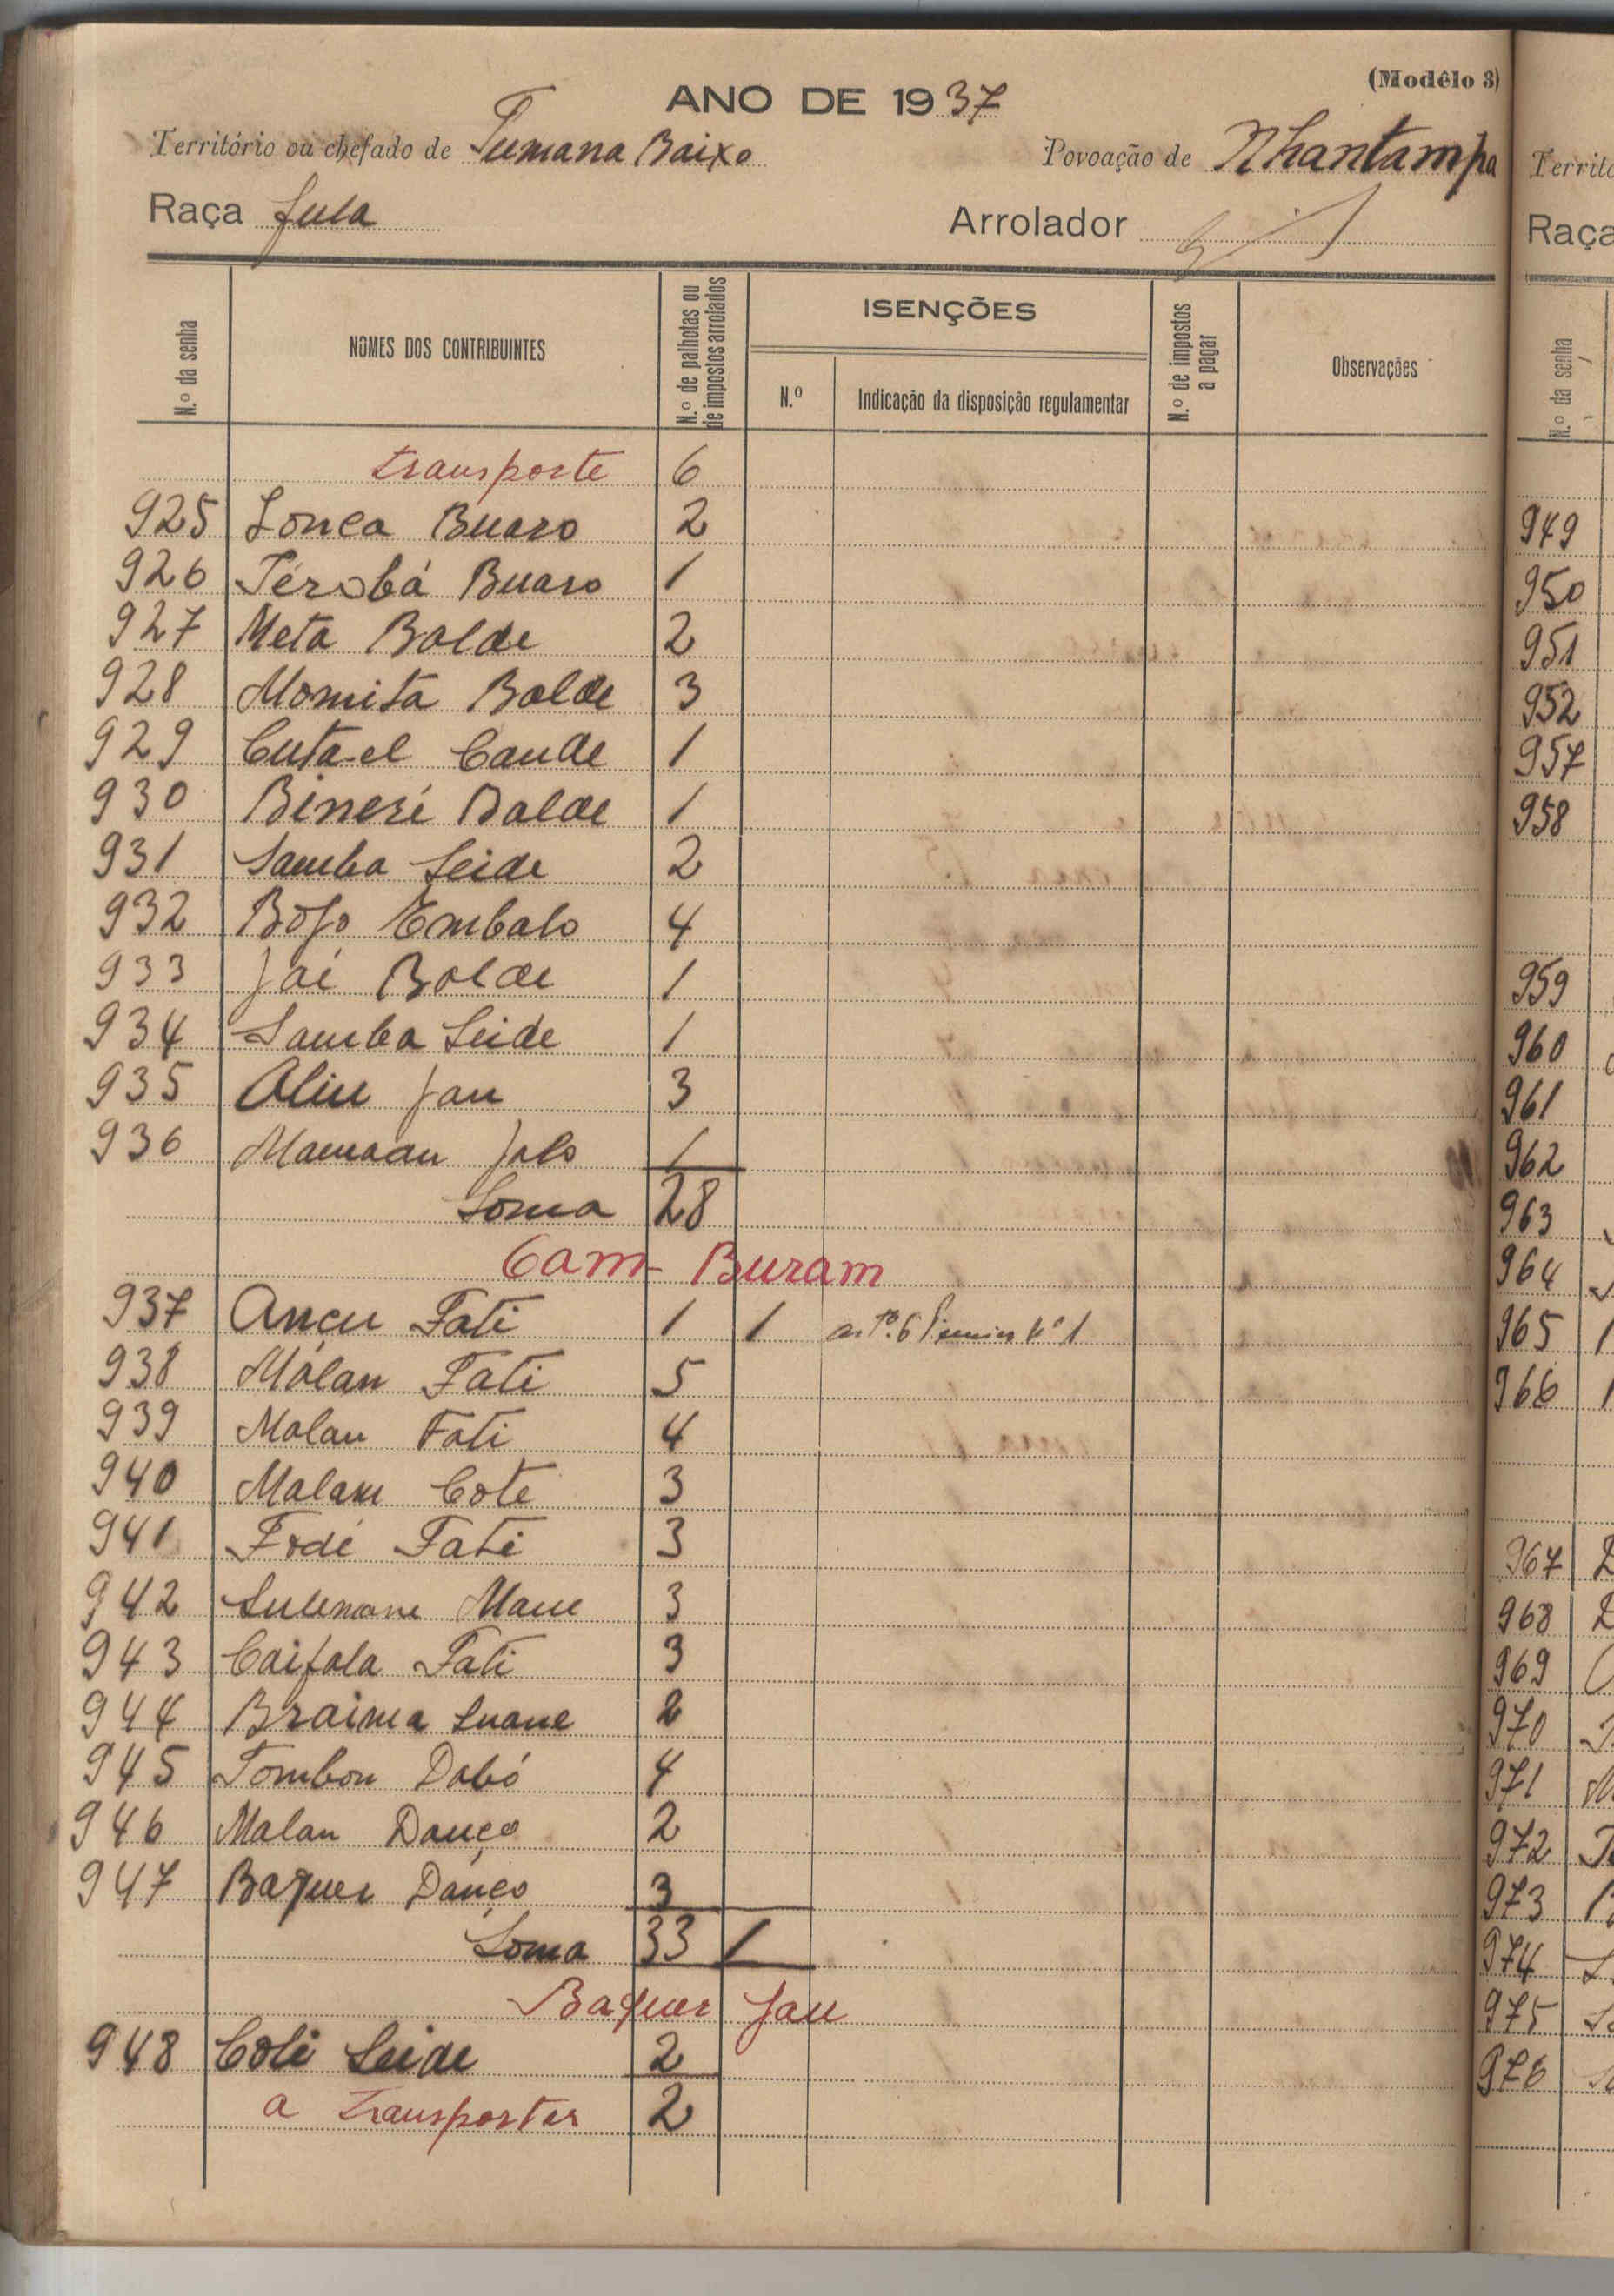 (Modêlo 3)
ANO DE 1937
Território ou chefado de Tumana Baixo Povoação de Nhantampa
Raça fula Arrolador
N.º da senha NOMES DOS CONTRIBUINTES N.º de palhotas ou de impostos arrolados ISENÇÕES N.º Indicação da disposição regulamentar N.º de impostos a pagar Observações
transporte 6
925 Buaro 2
926 Térobá Buaro 1
927 Meta Balde 2
928 Momita Balde 3
929 Cuta-el Cande 1
930 Bineré Balde 1
931 Samba Seide 2
932 Bojo Embalo 4
933 Jai Balde 1
934 Samba Seide 1
935 Aliu Jau 3
936 Mamadu Jalo 1
Soma 28
Cam-Buram
937 Ançu Fati 1 1 artº. 6 nº 1
938 Malan Fati 5
939 Malan Fati 4
940 Malam Cote 3
941 Fodé Fati 3
942 Sulemane Mane 3
943 Caifala Fati 3
944 Braima Suane 2
945 Tombon Dabó 4
946 Malan Danço 2
947 Baquer Danço 3
Soma 33 1
Baquer Jau
948 Coli Seide 2
a transportar 2
Territó
Raça
N.º da senha
949
950
951
952
957
958
959
960
961
962
963
964
965
966
967
968
969
970
971
972
973
974
975
976